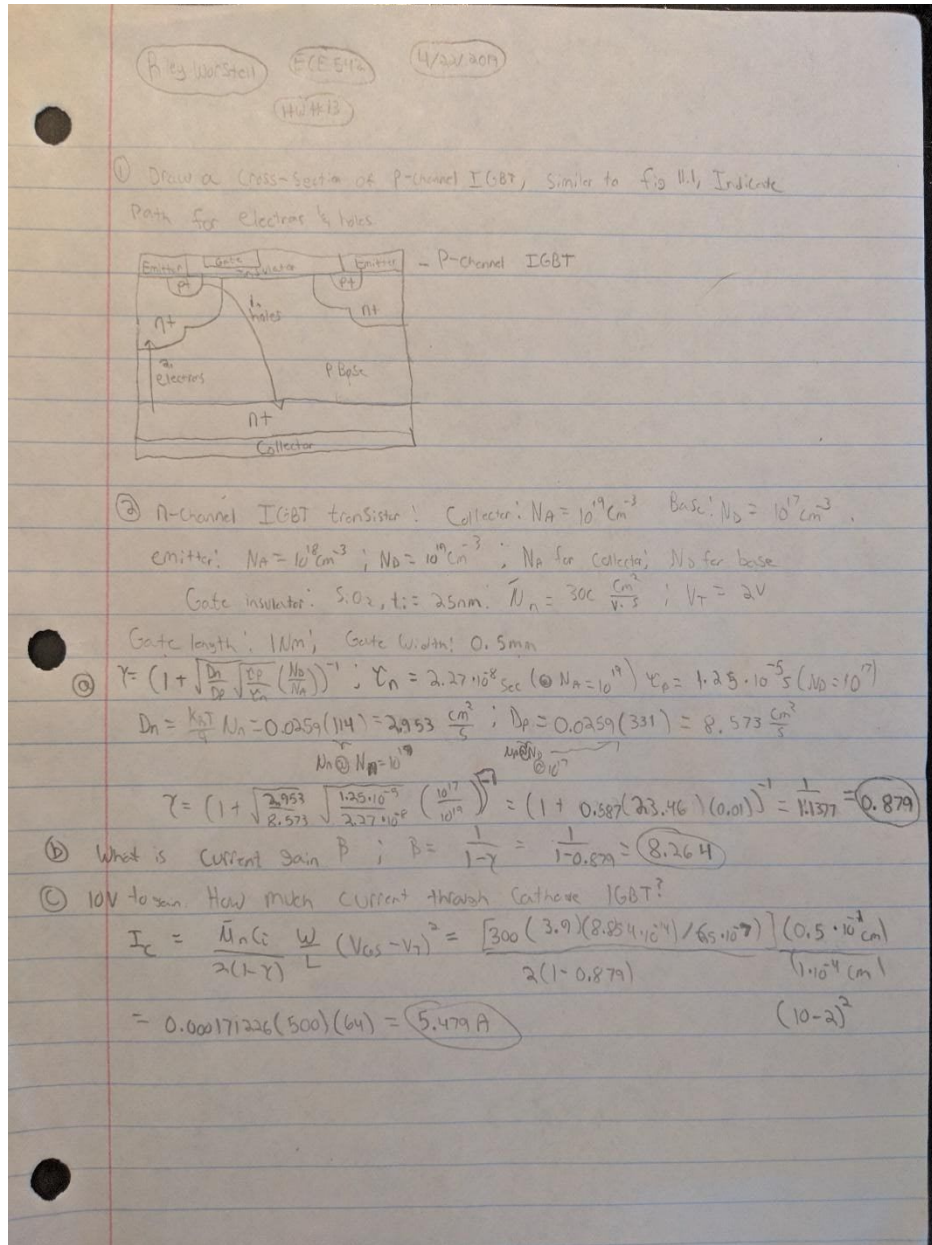 Riley Worstell ECE 542 4/22/2019
HW#13
① Draw a Cross-Section of P-channel IGBT, Similar to fig 11.1, Indicate
Path for electrons & holes
Emitter Gate Insulator Emitter - P-channel IGBT
P+ P+
1. holes
n+ n+
2. electrons
P Base
n+
Collector
② n-channel IGBT transistor: Collector: N_A = 10^19 cm^-3 Base: N_D = 10^17 cm^-3.
emitter: N_A = 10^18 cm^-3 ; N_D = 10^19 cm^-3 ; N_A for Collector; N_D for base
Gate insulator: SiO2, ti = 25nm. μ̄_n = 300 cm²/V·s ; V_T = 2V
Gate length: 1μm; Gate Width: 0.5mm
ⓐ γ = (1 + √(Dn/Dp) √(τp/τn) (N_D/N_A))^-1 ; τn = 2.27·10^-8 sec (@ N_A = 10^19) τp = 1.25·10^-5 s (N_D = 10^17)
Dn = K_BT/q μn = 0.0259(114) = 2.953 cm²/s ; Dp = 0.0259(331) = 8.573 cm²/s
μn @ N_A = 10^19
γ = (1 + √(2.953/8.573) √(1.25·10^-5/2.27·10^-8) (10^17/10^19))^-1 = (1 + 0.587(23.46)(0.01))^-1 = 1/1.1377 = 0.879
ⓑ What is Current gain β ; β = 1/(1-γ) = 1/(1-0.879) = 8.264
ⓒ 10V to gain. How much current through Cathode IGBT?
I_C = μ̄nCi/2(1-γ) W/L (V_GS - V_T)² = [300(3.9)(8.854·10^-14)/(25·10^-7)]/2(1-0.879) (0.5·10^-1 cm)/(1·10^-4 cm)
(10-2)²
= 0.000171226(500)(64) = 5.479 A